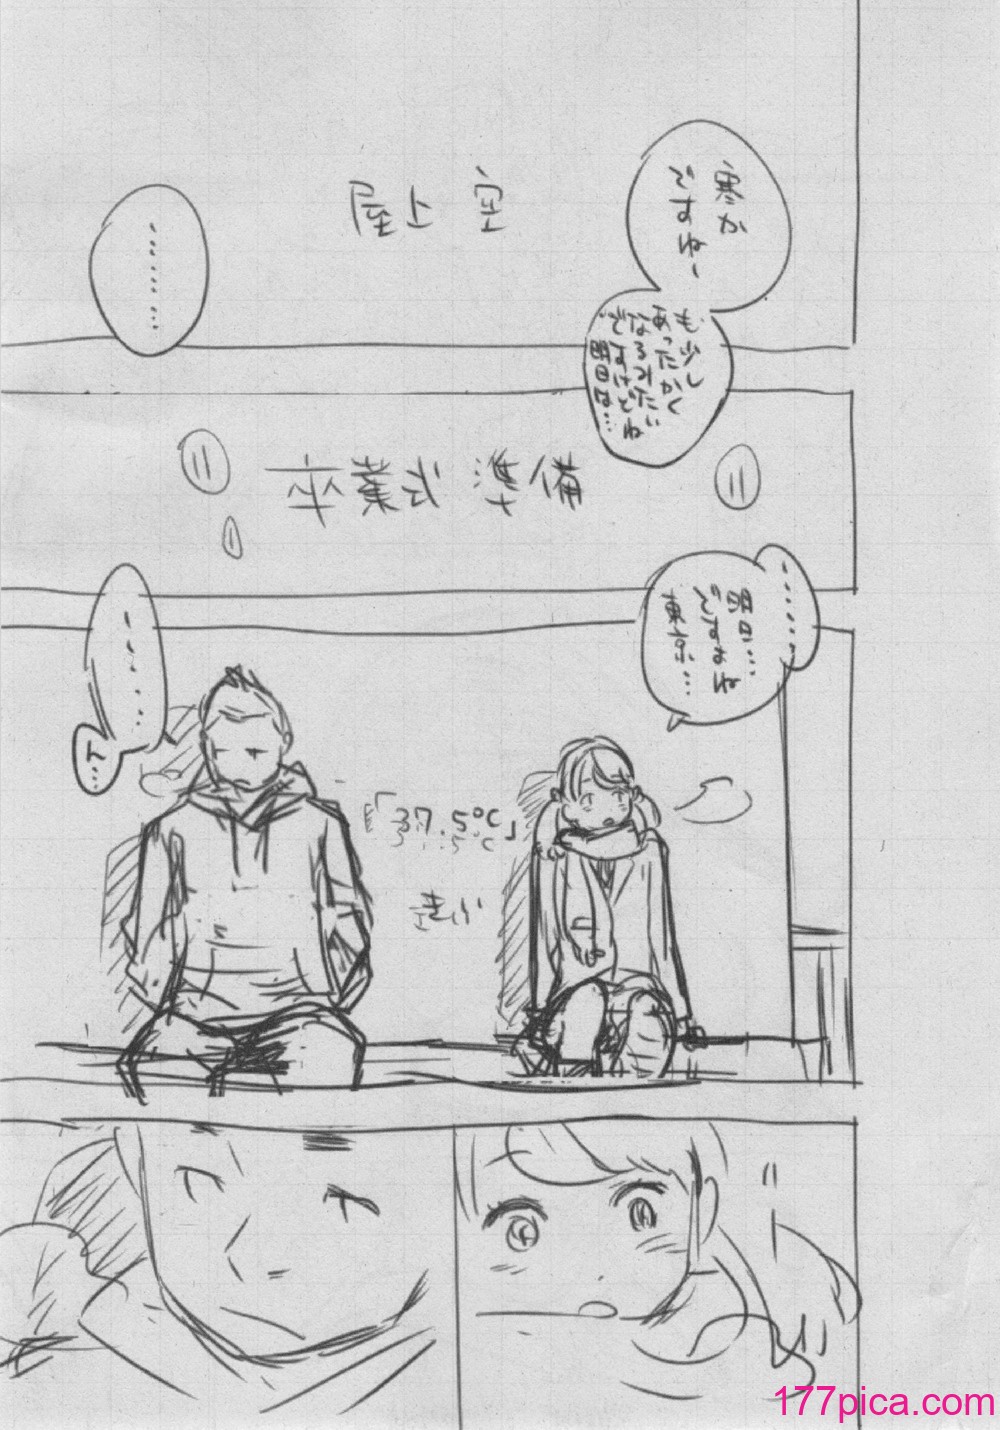 寒か
ですねー
も少し
あったかく
なるみたい
ですけどね
明日は…
屋上 空
………
卒業式 準備
………
明日…
ですよね
東京…
………
ん…
「37.5℃」
きふ
177pica.com